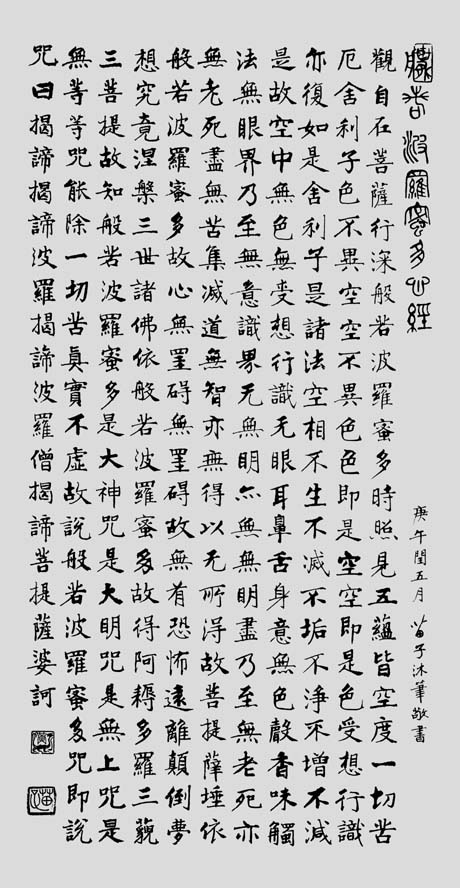 般若波羅蜜多心經
庚午閏五月 苗子沐筆敬書
觀自在菩薩行深般若波羅蜜多時照見五蘊皆空度一切苦
厄舍利子色不異空空不異色色即是空空即是色受想行識
亦復如是舍利子是諸法空相不生不滅不垢不淨不增不減
是故空中無色無受想行識无眼耳鼻舌身意無色聲香味觸
法無眼界乃至無意識界无無明亦無無明盡乃至無老死亦
無老死盡無苦集滅道無智亦無得以无所得故菩提薩埵依
般若波羅蜜多故心無罣碍無罣碍故無有恐怖遠離顛倒夢
想究竟涅槃三世諸佛依般若波羅蜜多故得阿耨多羅三藐
三菩提故知般若波羅蜜多是大神咒是大明咒是無上咒是
無等等咒能除一切苦真實不虛故說般若波羅蜜多咒即說
咒曰揭諦揭諦波羅揭諦波羅僧揭諦菩提薩婆訶